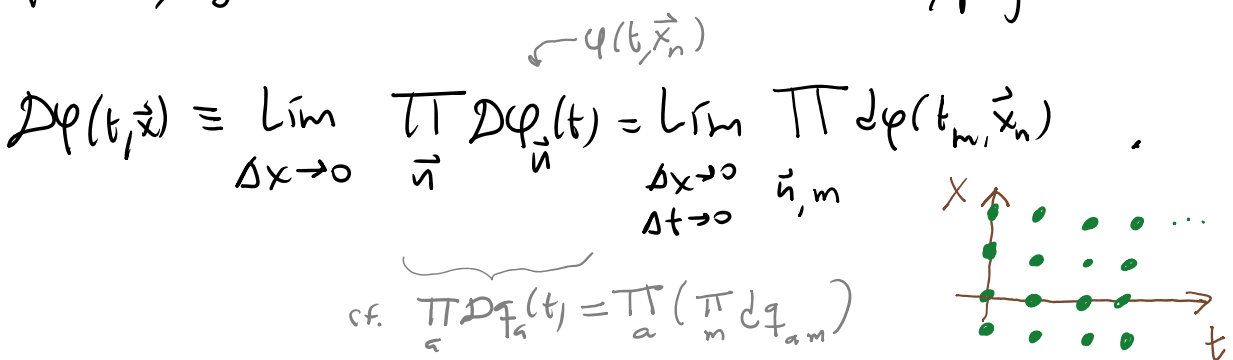 φ(t, x⃗ₙ)
Dφ(t, x⃗) ≡ Lim_{Δx→0} ∏_{n⃗} Dφ_{n⃗}(t) = Lim_{Δx→0, Δt→0} ∏_{n⃗, m} dφ(t_m, x⃗ₙ) .
X
...
cf. ∏_a Dq_a(t) = ∏_a (∏_m dq_{am})
t